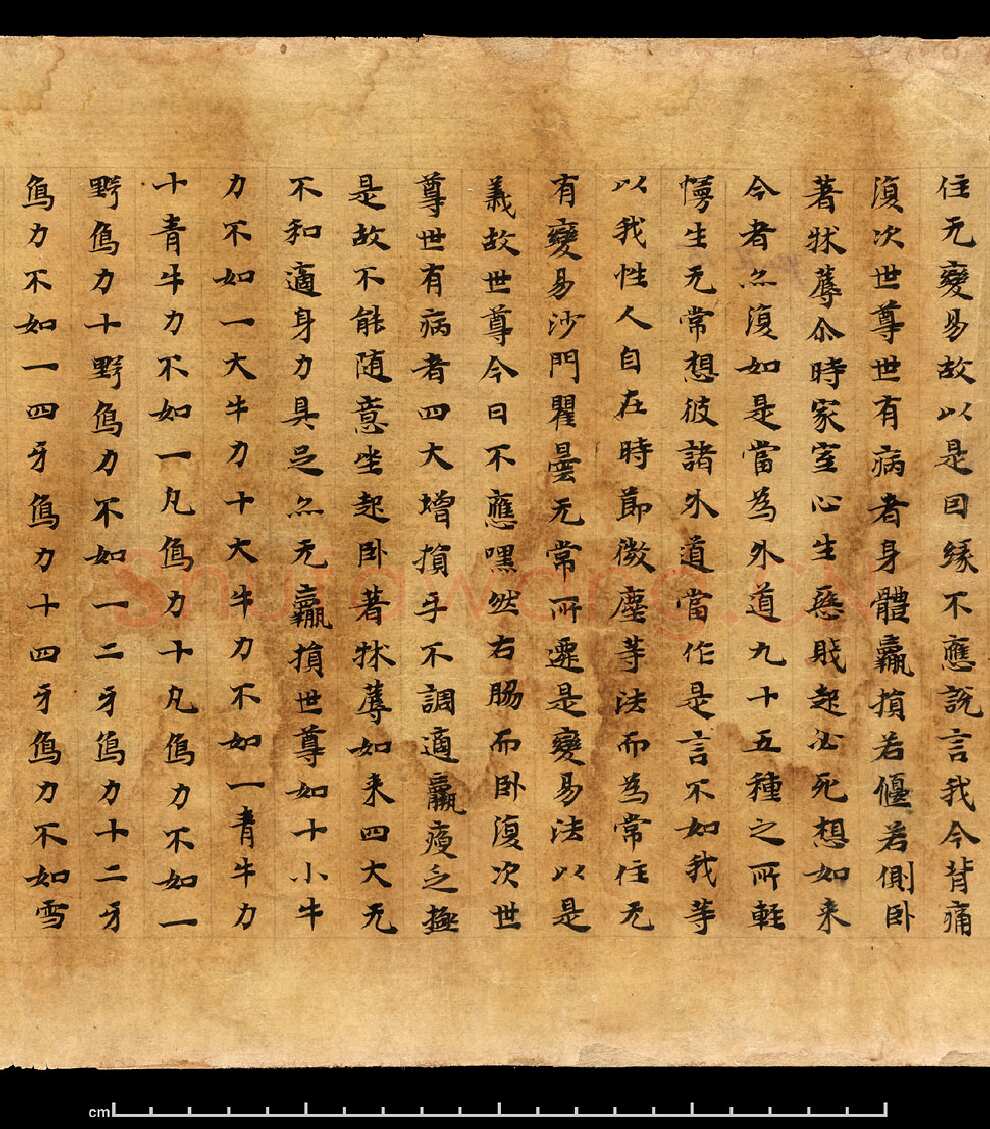 住无變易故以是因緣不應說言我今背痛
復次世尊世有病者身體羸損若偃若側卧
著牀蓐尒時家室心生惡賤起必死想如来
今者亦復如是當為外道九十五種之所軽
慢生无常想彼諸外道當作是言不如我等
以我性人自在時節微塵等法而為常住无
有變易沙門瞿曇无常所遷是變易法以是
義故世尊今日不應嘿然右脇而卧復次世
尊世有病者四大增損乎不調適羸瘦乏極
是故不能随意坐起卧著牀蓐如来四大无
不和適身力具足亦无羸損世尊如十小牛
力不如一大牛力十大牛力不如一青牛力
十青牛力不如一凡鳥力十凡鳥力不如一
野鳥力十野鳥力不如一二牙鳥力十二牙
鳥力不如一四牙鳥力十四牙鳥力不如雪
cm